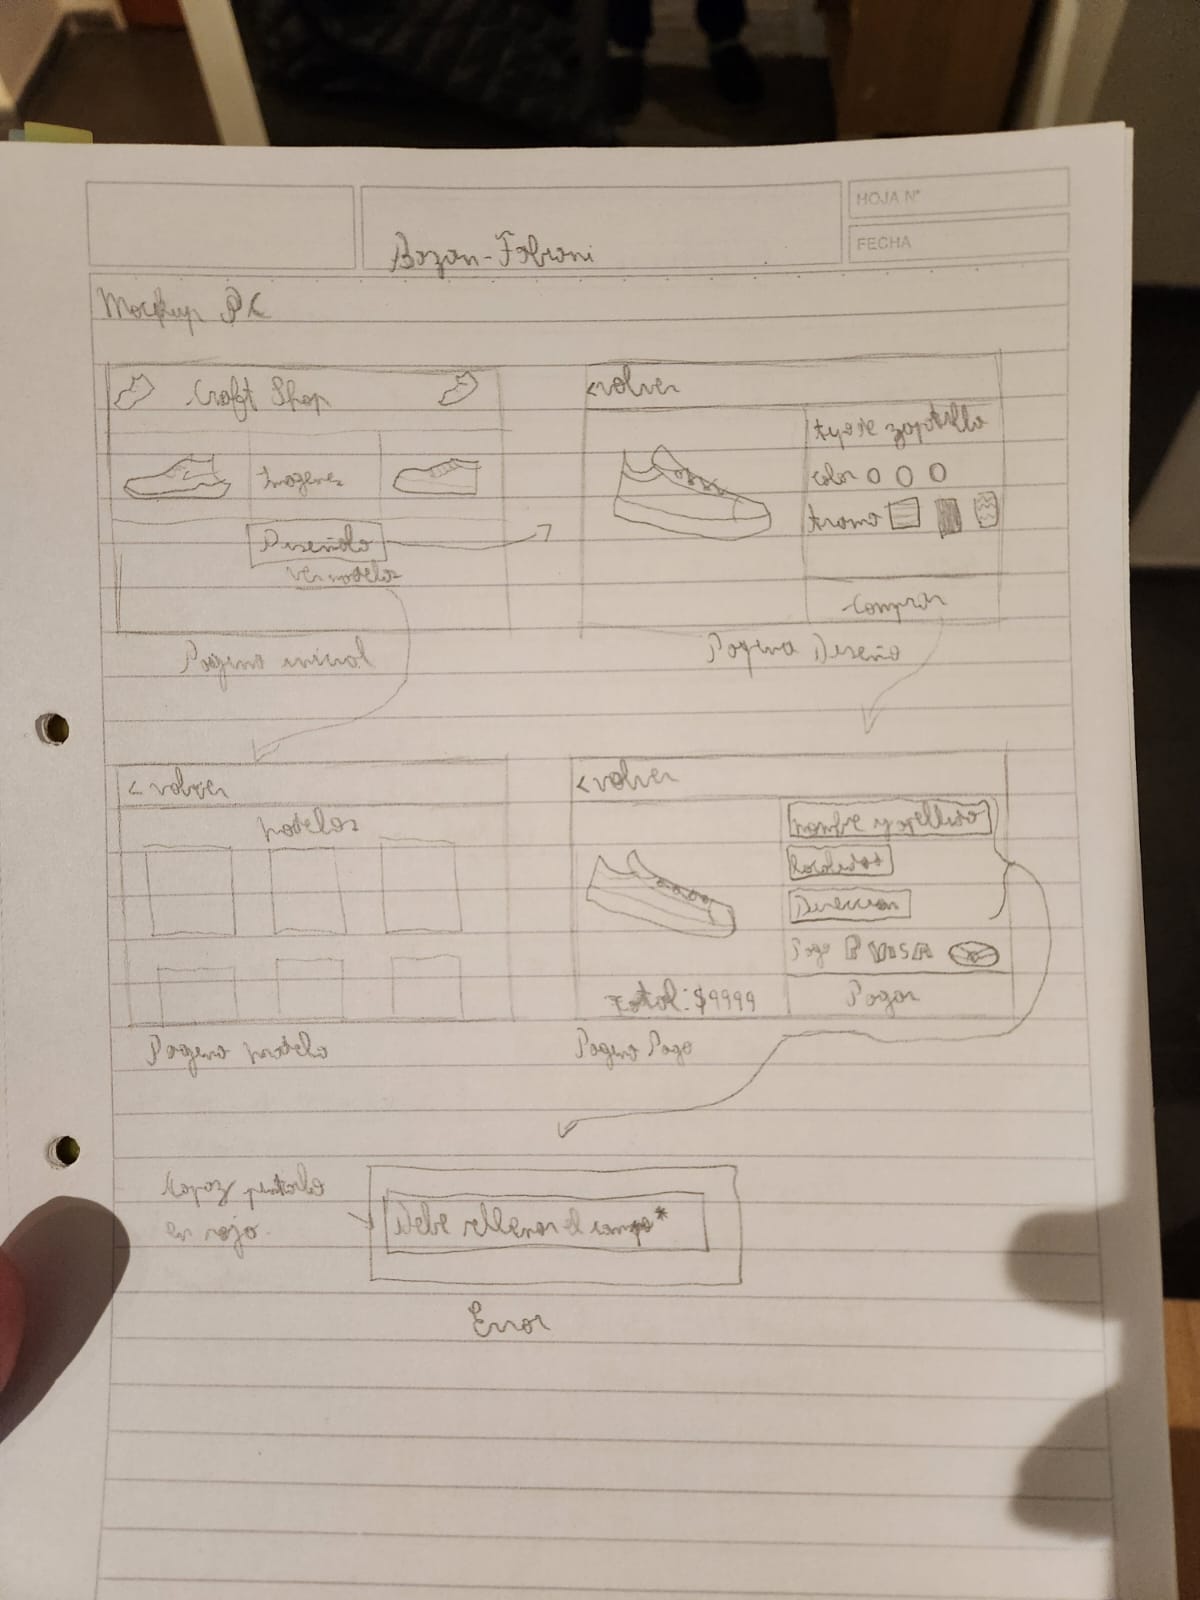 HOJA N°
FECHA
Bazan-Fabroni
Mockup PC
Craft Shop
Imagenes
Diseñalo
ver modelos
Pagina inicial
<volver
color
trama
Comprar
Pagina Diseño
< volver
modelos
Pagina modelo
<volver
nombre y apellido
Direccion
Pago P VISA
Total: $9999
Pagar
Pagina Pago
en rojo.
Debe rellenar el campo*
Error